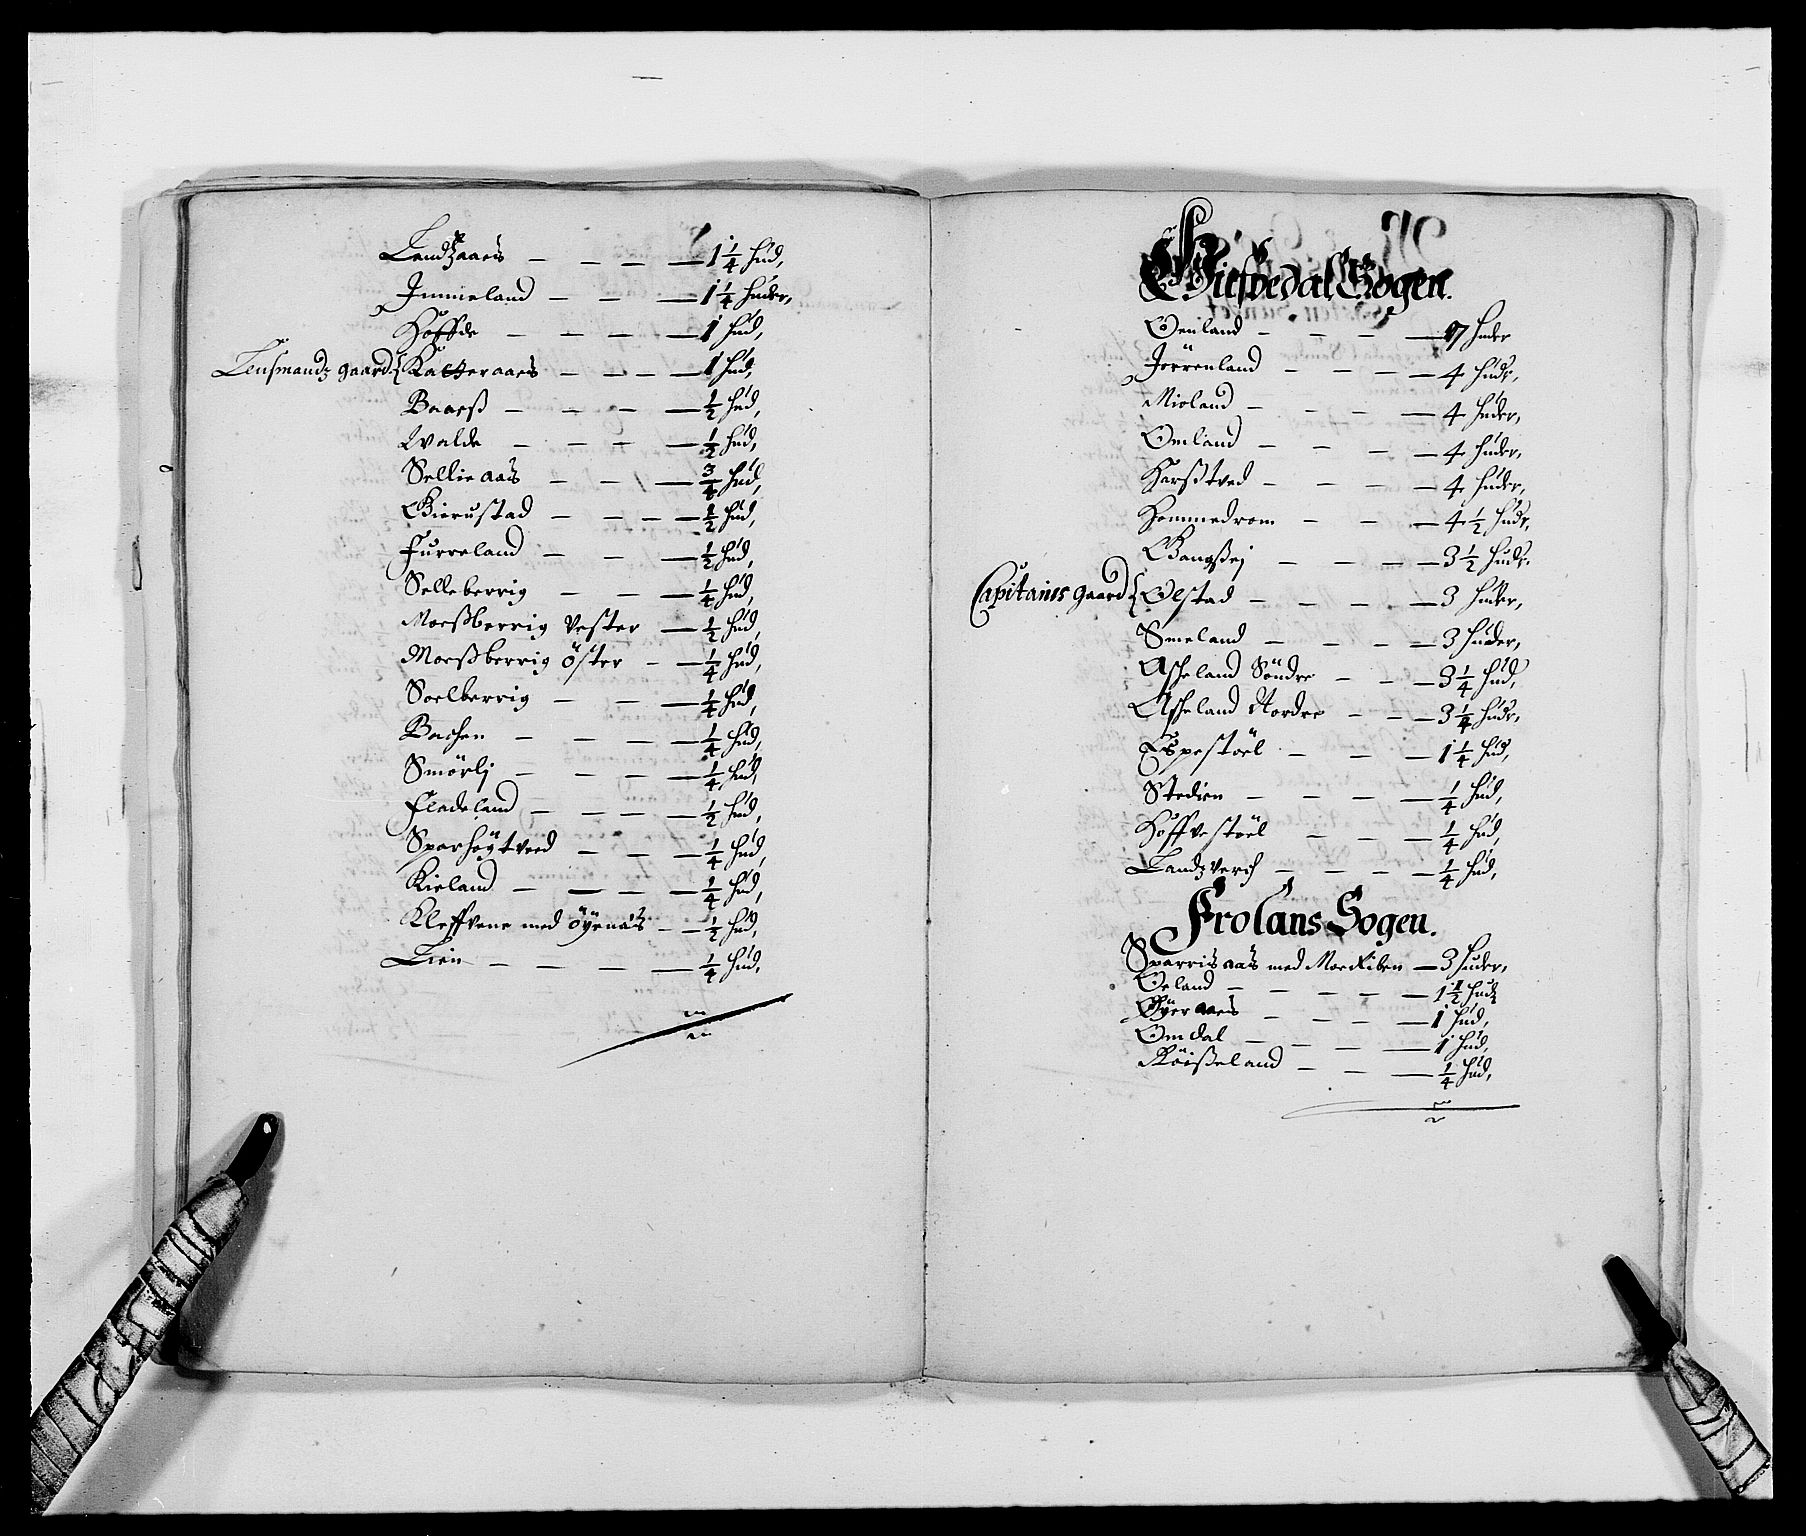 Landzaaes — — — — 1 1/4 hud,
Immeland — — — 1 1/4 huder,
Hoffde — — — — 1 hud,
Lensmandz gaard { Katteraaes — — — 1 hud,
Baaesß — — — — 1/2 hud,
Walde — — — — 1/2 hud,
Sellieaas — — — 3/4 hud,
Bierustad — — — — 1/2 hud,
Furreland — — — 1/2 hud,
Selleberrig — — — 1/4 hud,
Moesßberrig Vester — 1/2 hud,
Moesßberrig Öster — — 1/4 hud,
Soelberrig — — — 1/4 hud,
Bachen — — — — 1/4 hud,
Smörlj — — — — 1/4 hud,
Fladeland — — — — 1/2 hud,
Sparhögtved — — — 1/4 hud,
Kieland — — — — 1/4 hud,
Kleffvene med Öÿenäs — — 1/2 hud,
Lien — — — — 1/4 hud,
Giefvedal Sogen.
Oenland — — — — 7 huder
Jörrenland — — — — 4 hudr,
Mioland — — — — 4 huder,
Omland — — — — 4 huder,
Harsßtved — — — — 4 huder,
Hommedrom — — — 4 1/2 hudr,
Bangsßej — — — — 3 1/2 hudr.
Capitanes gaard { Ølstad — — — — 3 huder,
Smeland — — — — 3 huder,
Asheland Söndre — — — 3 1/4 hud,
Asheland Nordre — — — 3 1/4 hudr,
Espestöel — — — 1 1/4 hud,
Stedien — — — — 1/4 hud,
Hoffvestöel — — — 1/4 hud,
Landzverch — — — — 1/4 hud,
Frolans Sogen.
Sparrisaas med Morkiben — 3 huder,
Oeland — — — — — 1 1/2 hudr
Øÿeraaes — — — — 1 hud,
Omdal — — — — — 1 hud,
Röisßeland — — — 1/4 hud,